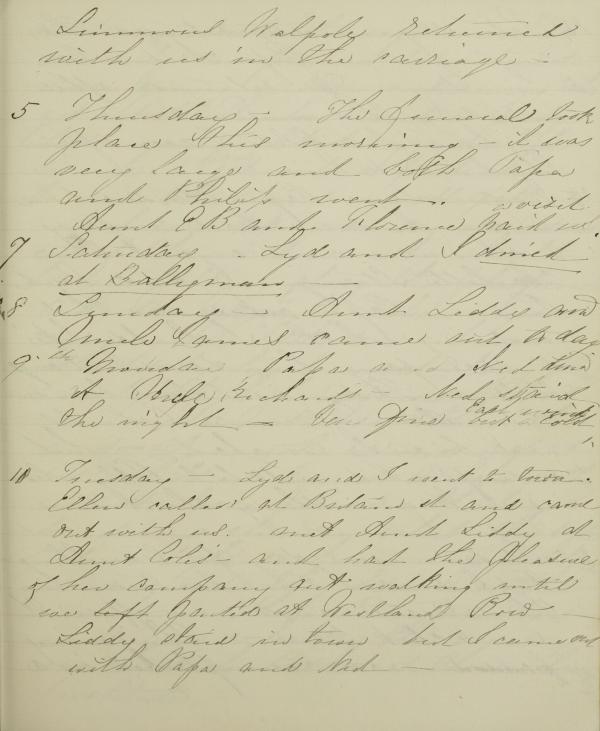 Simmons Walpole returned
with us in the carriage -
5 Thursday - The funeral took
place this morning - it was
very large and both Papa
and Philip went.
Aunt EB and Florence paid us a visit
7 Saturday - Lyd and I dined
at
8 Sunday - Aunt Liddy and
Uncle James came out to day
9th Monday Papa and Ned dined
at Uncle Richards - Ned staid
the night - Very fine but East wind cold
10 Tuesday - Lyd and I went to town.
Ellen called at st and came
out with us. met Aunt Liddy at
Aunt Coles - and had the pleasure
of her company out walking until
we left parted at Westland Row -
Liddy staid in town but I came out
with Papa and Ned -